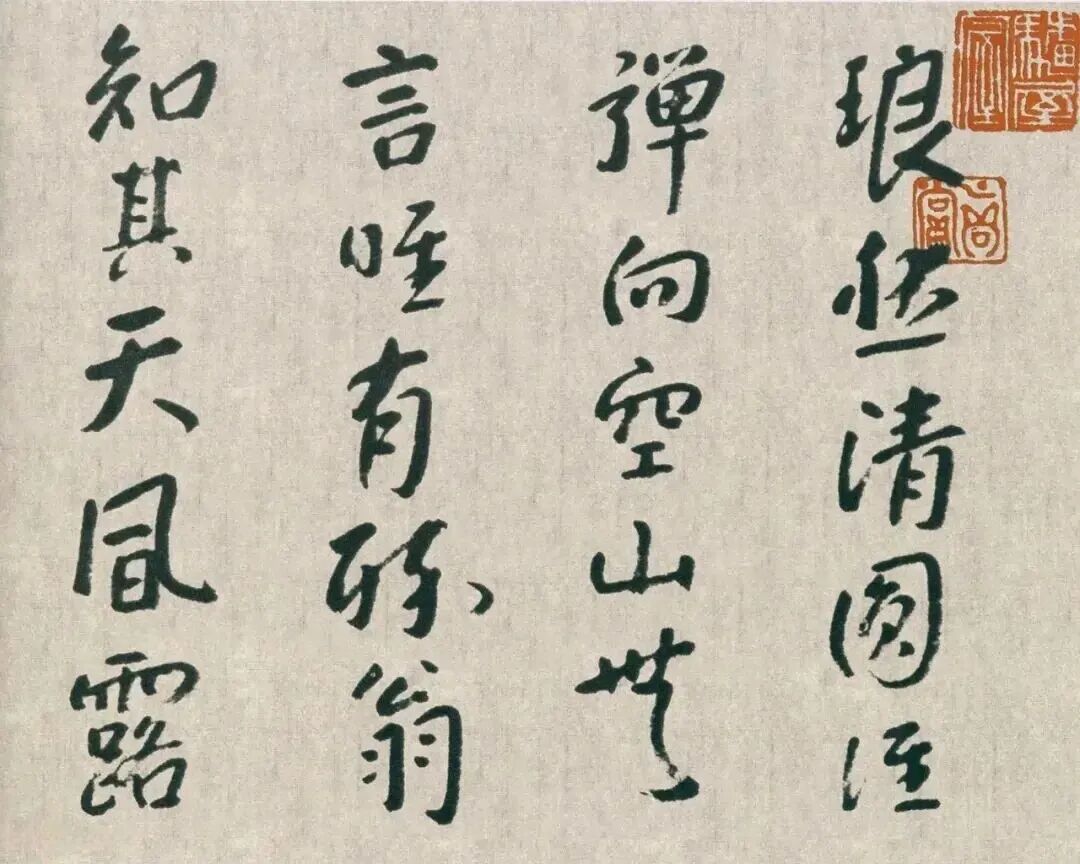 琅然清圓誰
彈向空山無
言唯有醉翁
知其天風露